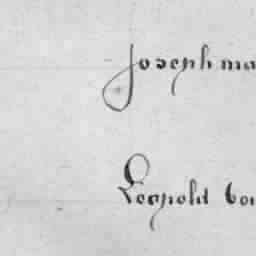 Joseph ma
Leopold von